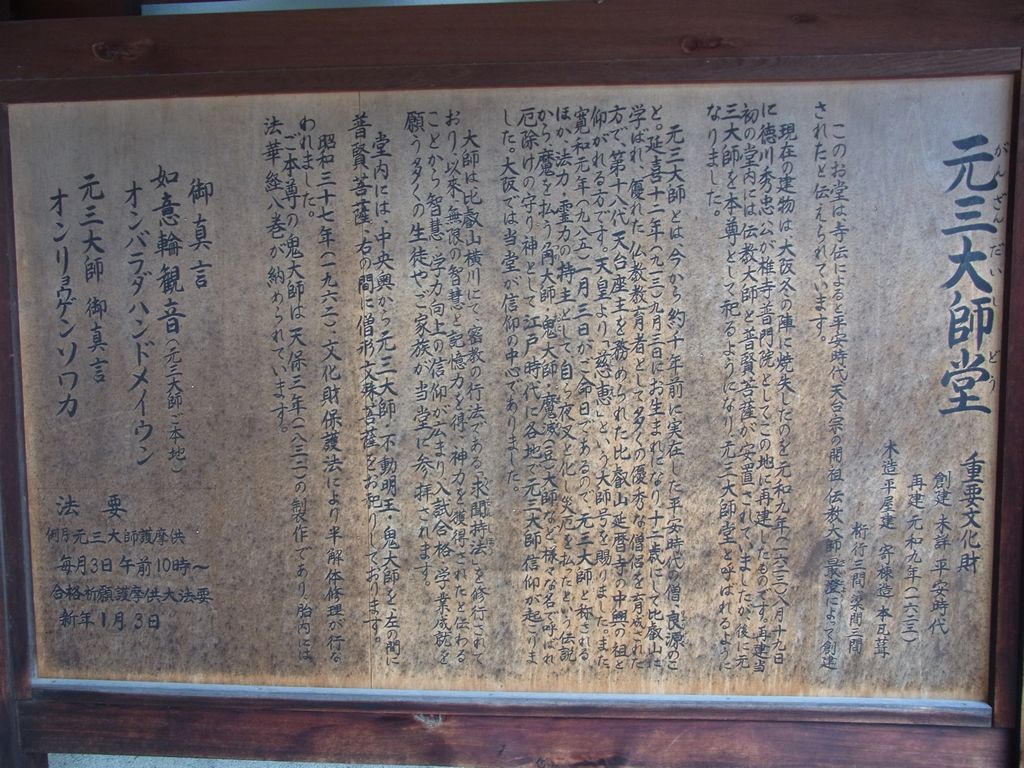 元三大師堂
がんざんだいしどう
重要文化財
創建 未詳 平安時代
再建 元和九年(一六二三)
木造平屋建 寄棟造 本瓦葺
桁行三間 梁間三間
このお堂は、寺伝によると平安時代天台宗の開祖 伝教大師 最澄によって創造
されたと伝えられています。
現在の建物は、大阪冬の陣に焼失したのを元和九年(一六二三)八月十九日
に徳川秀忠公が椎寺普門院としてこの地に再建したものです。再建当
初の堂内には伝教大師と普賢菩薩が安置されていましたが、後に元
三大師を本尊として祀るようになり、元三大師堂と呼ばれるように
なりました。
元三大師とは、今から約千年前に実在した平安時代の僧 良源のこ
と。延喜十二年(九一二)九月三日にお生まれになり、十二歳にて比叡山に
学ばれ、優れた仏教教育者として多くの優秀な僧侶を育成された
方で、第十八代 天台座主を務められた比叡山 延暦寺の中興の祖と
仰がれる方です。天皇より「慈恵」という大師号を賜りました。また、
寛和元年(九八五)一月三日がご命日であるので、元三大師と称される
ほか、法力・霊力の持主として自らを夜叉と化し災厄を払ったという伝説
から、魔を払う角大師・鬼大師・魔滅(豆)大師など様々な名で呼ばれ
厄除けの守り神として、江戸時代に各地で元三大師信仰が起こりま
した。大阪では当堂が信仰の中心でありました。
大師は比叡山横川にて、密教の行法である「求聞持法」を修行されて
おり、以来、無限の智慧と記憶力を得、神力を獲得されたと伝わる
ことから智慧、学力向上の信仰が広まり、入試合格、学業成就を
願う多くの生徒やご家族が当堂に参拝されます。
堂内には、中央奥から元三大師・不動明王・鬼大師を、左の間に
普賢菩薩、右の間に僧形文殊菩薩をお祀りしております。
昭和三十七年(一九六二)、文化財保護法により半解体修理が行な
われました。
ご本尊の鬼大師は天保三年(一八三二)の製作であり、胎内には
法華経八巻が納められています。
御真言
如意輪観音(元三大師ご本地)
オンバラダハンドメイウン
元三大師 御真言
オンリョウゲンソワカ
法 要
例月元三大師護摩供
毎月3日 午前10時〜
合格祈願護摩供大法要
新年1月3日